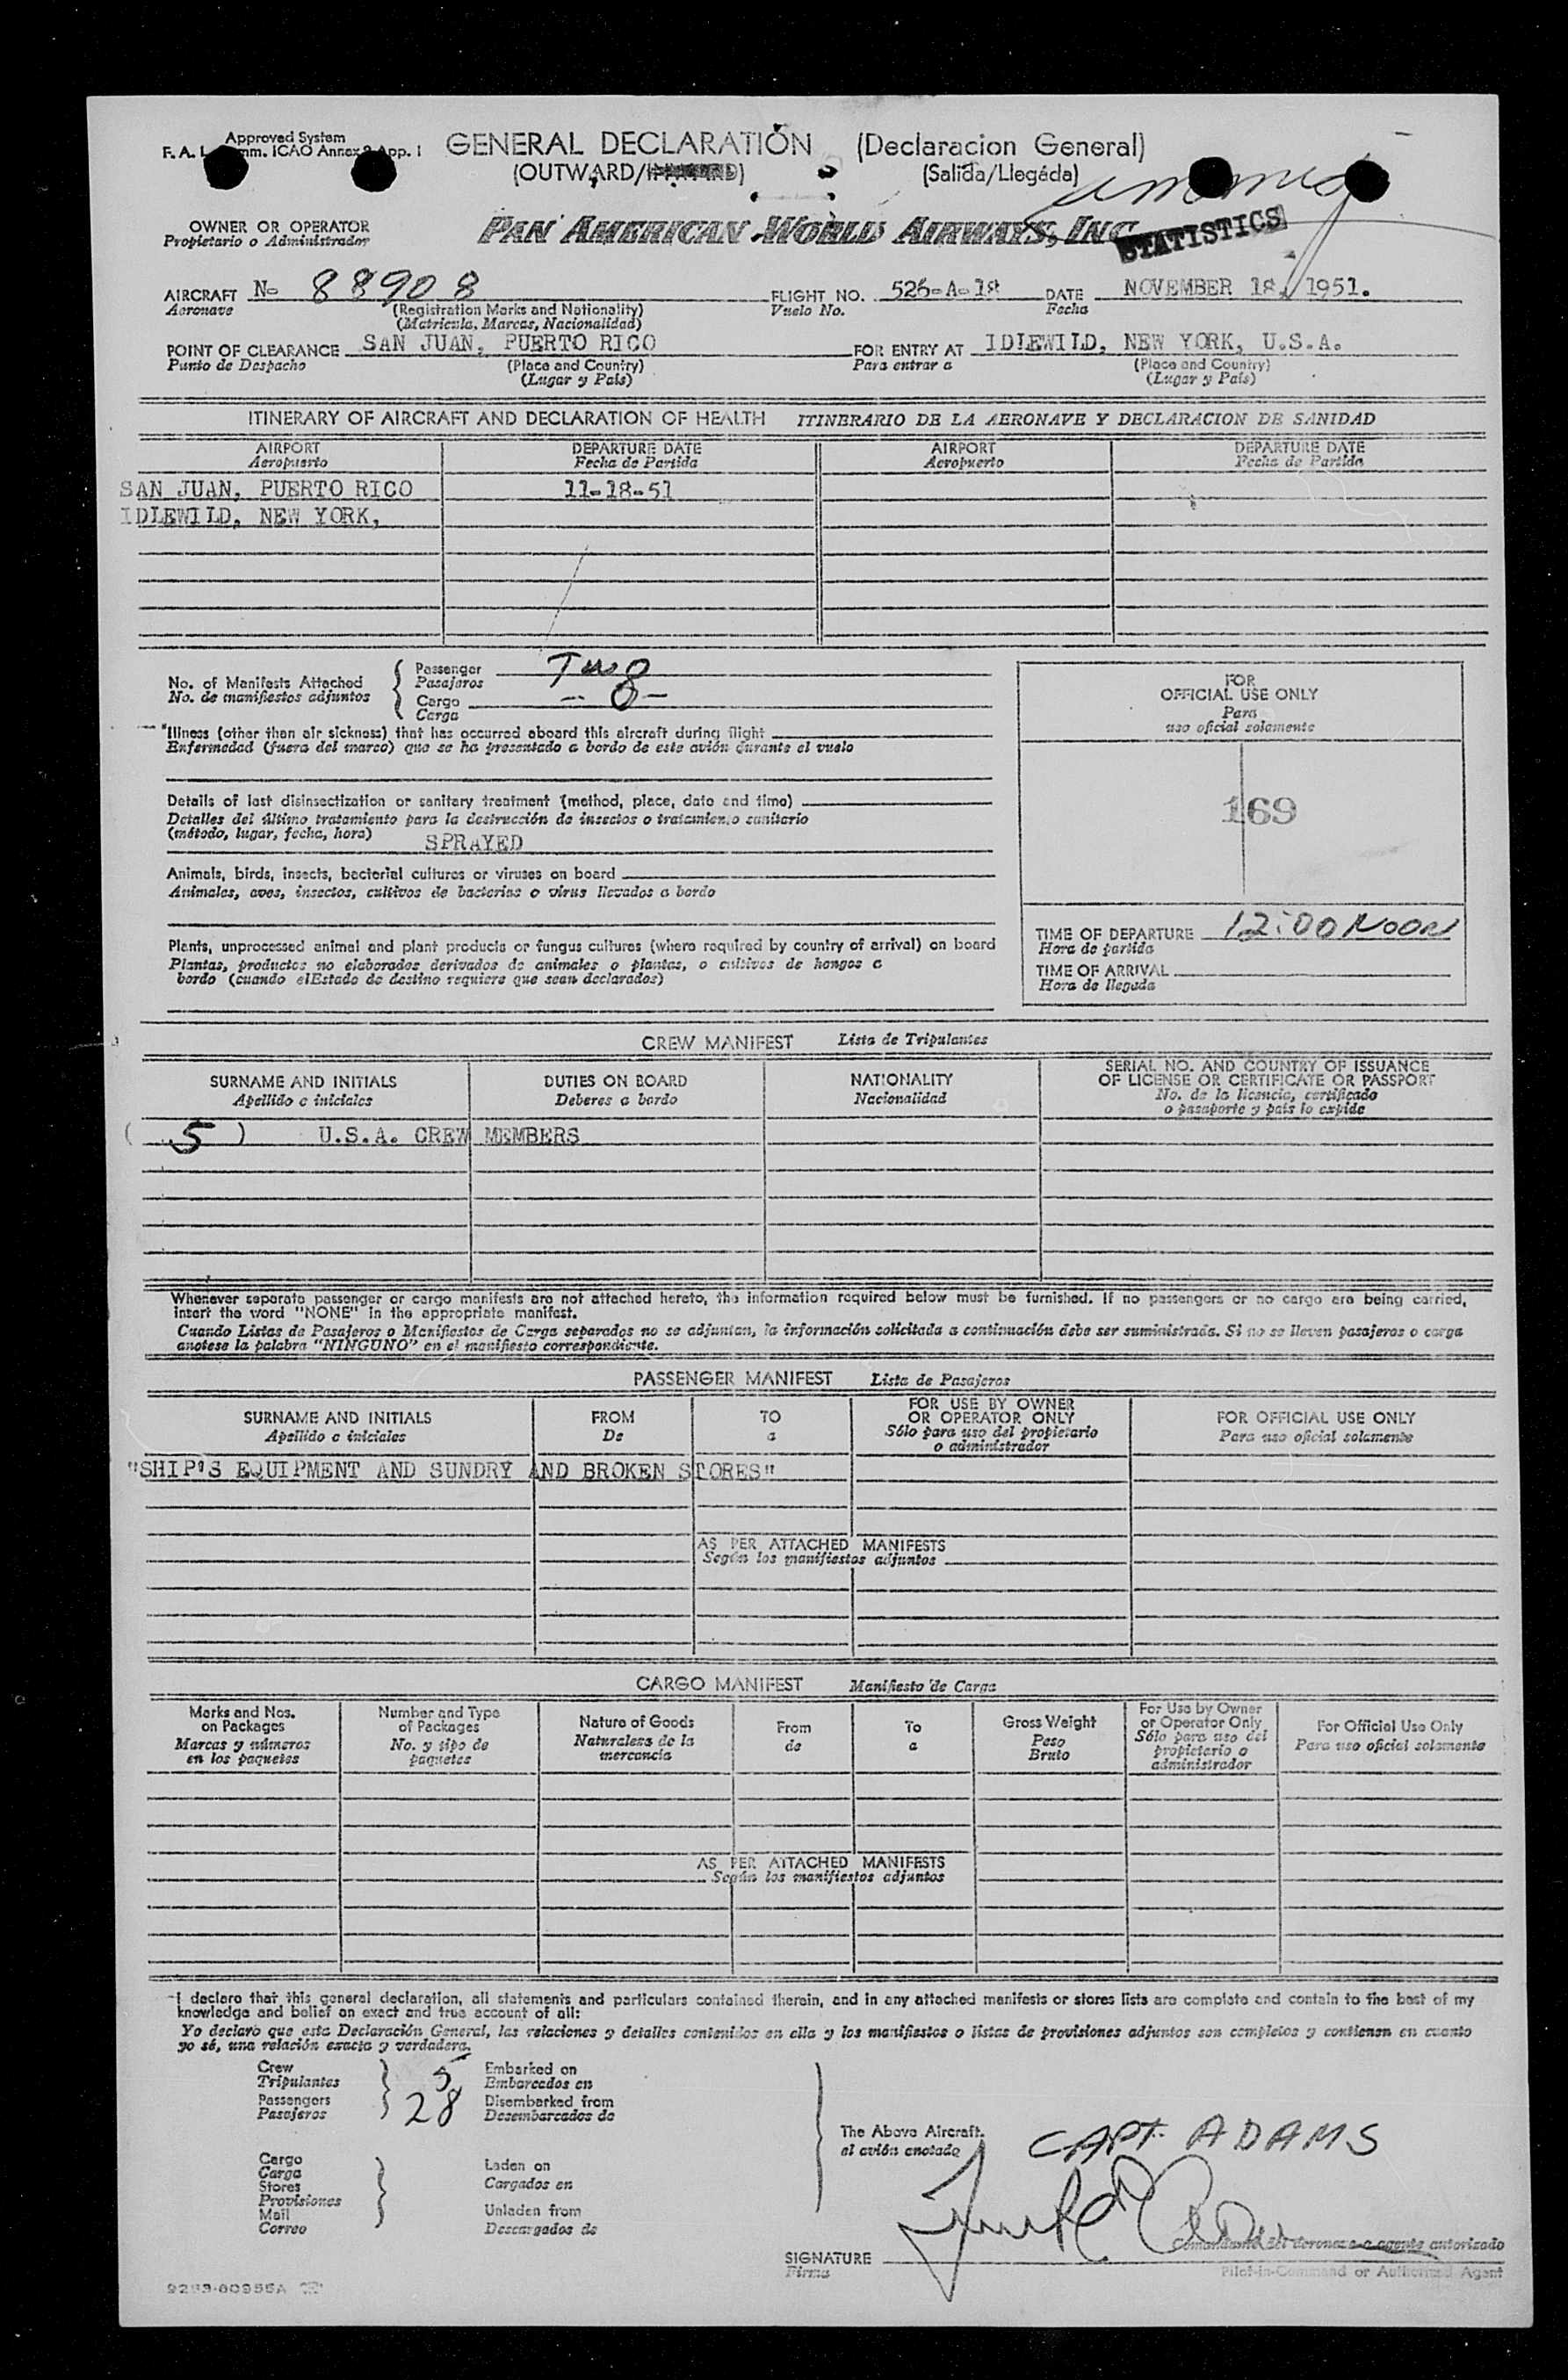 Approved System
F. A. L. Comm. ICAO Annex 9 App. 1
GENERAL DECLARATION (Declaracion General)
(OUTWARD/INWARD) (Salida/Llegada)
OWNER OR OPERATOR
Propietario o Administrador
PAN AMERICAN WORLD AIRWAYS, INC.
STATISTICS
AIRCRAFT N- 88908 FLIGHT NO. 526-A-18 DATE NOVEMBER 18, 1951.
Aeronave (Registration Marks and Nationality) Vuelo No. Fecha
(Matricula, Marcas, Nacionalidad)
POINT OF CLEARANCE SAN JUAN, PUERTO RICO FOR ENTRY AT IDLEWILD, NEW YORK, U.S.A.
Punto de Despacho (Place and Country) Para entrar a (Place and Country)
(Lugar y País) (Lugar y País)
ITINERARY OF AIRCRAFT AND DECLARATION OF HEALTH ITINERARIO DE LA AERONAVE Y DECLARACION DE SANIDAD
AIRPORT DEPARTURE DATE AIRPORT DEPARTURE DATE
Aeropuerto Fecha de Partida Aeropuerto Fecha de Partida
SAN JUAN, PUERTO RICO 11-18-51
IDLEWILD, NEW YORK,
No. of Manifests Attached
No. de manifiestos adjuntos
Passenger Two
Pasajeros
Cargo
Carga
Illness (other than air sickness) that has occurred aboard this aircraft during flight
Enfermedad (fuera del mareo) que se ha presentado a bordo de este avión durante el vuelo
Details of last disinsectization or sanitary treatment (method, place, date and time)
Detalles del último tratamiento para la destrucción de insectos o tratamiento sanitario
(método, lugar, fecha, hora) SPRAYED
Animals, birds, insects, bacterial cultures or viruses on board
Animales, aves, insectos, cultivos de bacterias o virus llevados a bordo
Plants, unprocessed animal and plant products or fungus cultures (where required by country of arrival) on board
Plantas, productos no elaborados derivados de animales o plantas, o cultivos de hongos a
bordo (cuando el Estado de destino requiere que sean declarados)
FOR
OFFICIAL USE ONLY
Para
uso oficial solamente
169
TIME OF DEPARTURE 12:00 NOON
Hora de partida
TIME OF ARRIVAL
Hora de llegada
CREW MANIFEST Lista de Tripulantes
SURNAME AND INITIALS DUTIES ON BOARD NATIONALITY SERIAL NO. AND COUNTRY OF ISSUANCE
OF LICENSE OR CERTIFICATE OR PASSPORT
Apellido e iniciales Deberes a bordo Nacionalidad No. de la licencia, certificado
o pasaporte y país lo expide
( 5 ) U.S.A. CREW MEMBERS
Whenever separate passenger or cargo manifests are not attached hereto, the information required below must be furnished. If no passengers or no cargo are being carried,
insert the word "NONE" in the appropriate manifest.
Cuando Listas de Pasajeros o Manifiestos de Carga separados no se adjuntan, la información solicitada a continuación debe ser suministrada. Si no se lleven pasajeros o carga
anotese la palabra "NINGUNO" en el manifiesto correspondiente.
PASSENGER MANIFEST Lista de Pasajeros
SURNAME AND INITIALS FROM TO FOR USE BY OWNER
OR OPERATOR ONLY FOR OFFICIAL USE ONLY
Apellido e iniciales De a Sólo para uso del propietario
o administrador Para uso oficial solamente
"SHIP'S EQUIPMENT AND SUNDRY AND BROKEN STORES"
AS PER ATTACHED MANIFESTS
Según los manifiestos adjuntos
CARGO MANIFEST Manifiesto de Carga
Marks and Nos.
on Packages
Marcas y números
en los paquetes
Number and Type
of Packages
No. y tipo de
paquetes
Nature of Goods
Naturaleza de la
mercancía
From
de
To
a
Gross Weight
Peso
Bruto
For Use by Owner
or Operator Only
Sólo para uso del
propietario o
administrador
For Official Use Only
Para uso oficial solamente
AS PER ATTACHED MANIFESTS
Según los manifiestos adjuntos
I declare that this general declaration, all statements and particulars contained therein, and in any attached manifests or stores lists are complete and contain to the best of my
knowledge and belief an exact and true account of all:
Yo declaro que esta Declaración General, las relaciones y detalles contenidos en ella y los manifiestos o listas de provisiones adjuntos son completos y contienen en cuanto
yo sé, una relación exacta y verdadera.
Crew 5 Embarked on
Tripulantes Embarcados en
Passengers 28 Disembarked from
Pasajeros Desembarcados de
Cargo
Carga
Stores
Provisiones
Mail
Correo
Laden on
Cargados en
Unladen from
Descargados de
The Above Aircraft.
el avión anotado
CAPT. ADAMS
Comandante del aeronave o agente autorizado
SIGNATURE
Firma
Pilot-in-Command or Authorized Agent